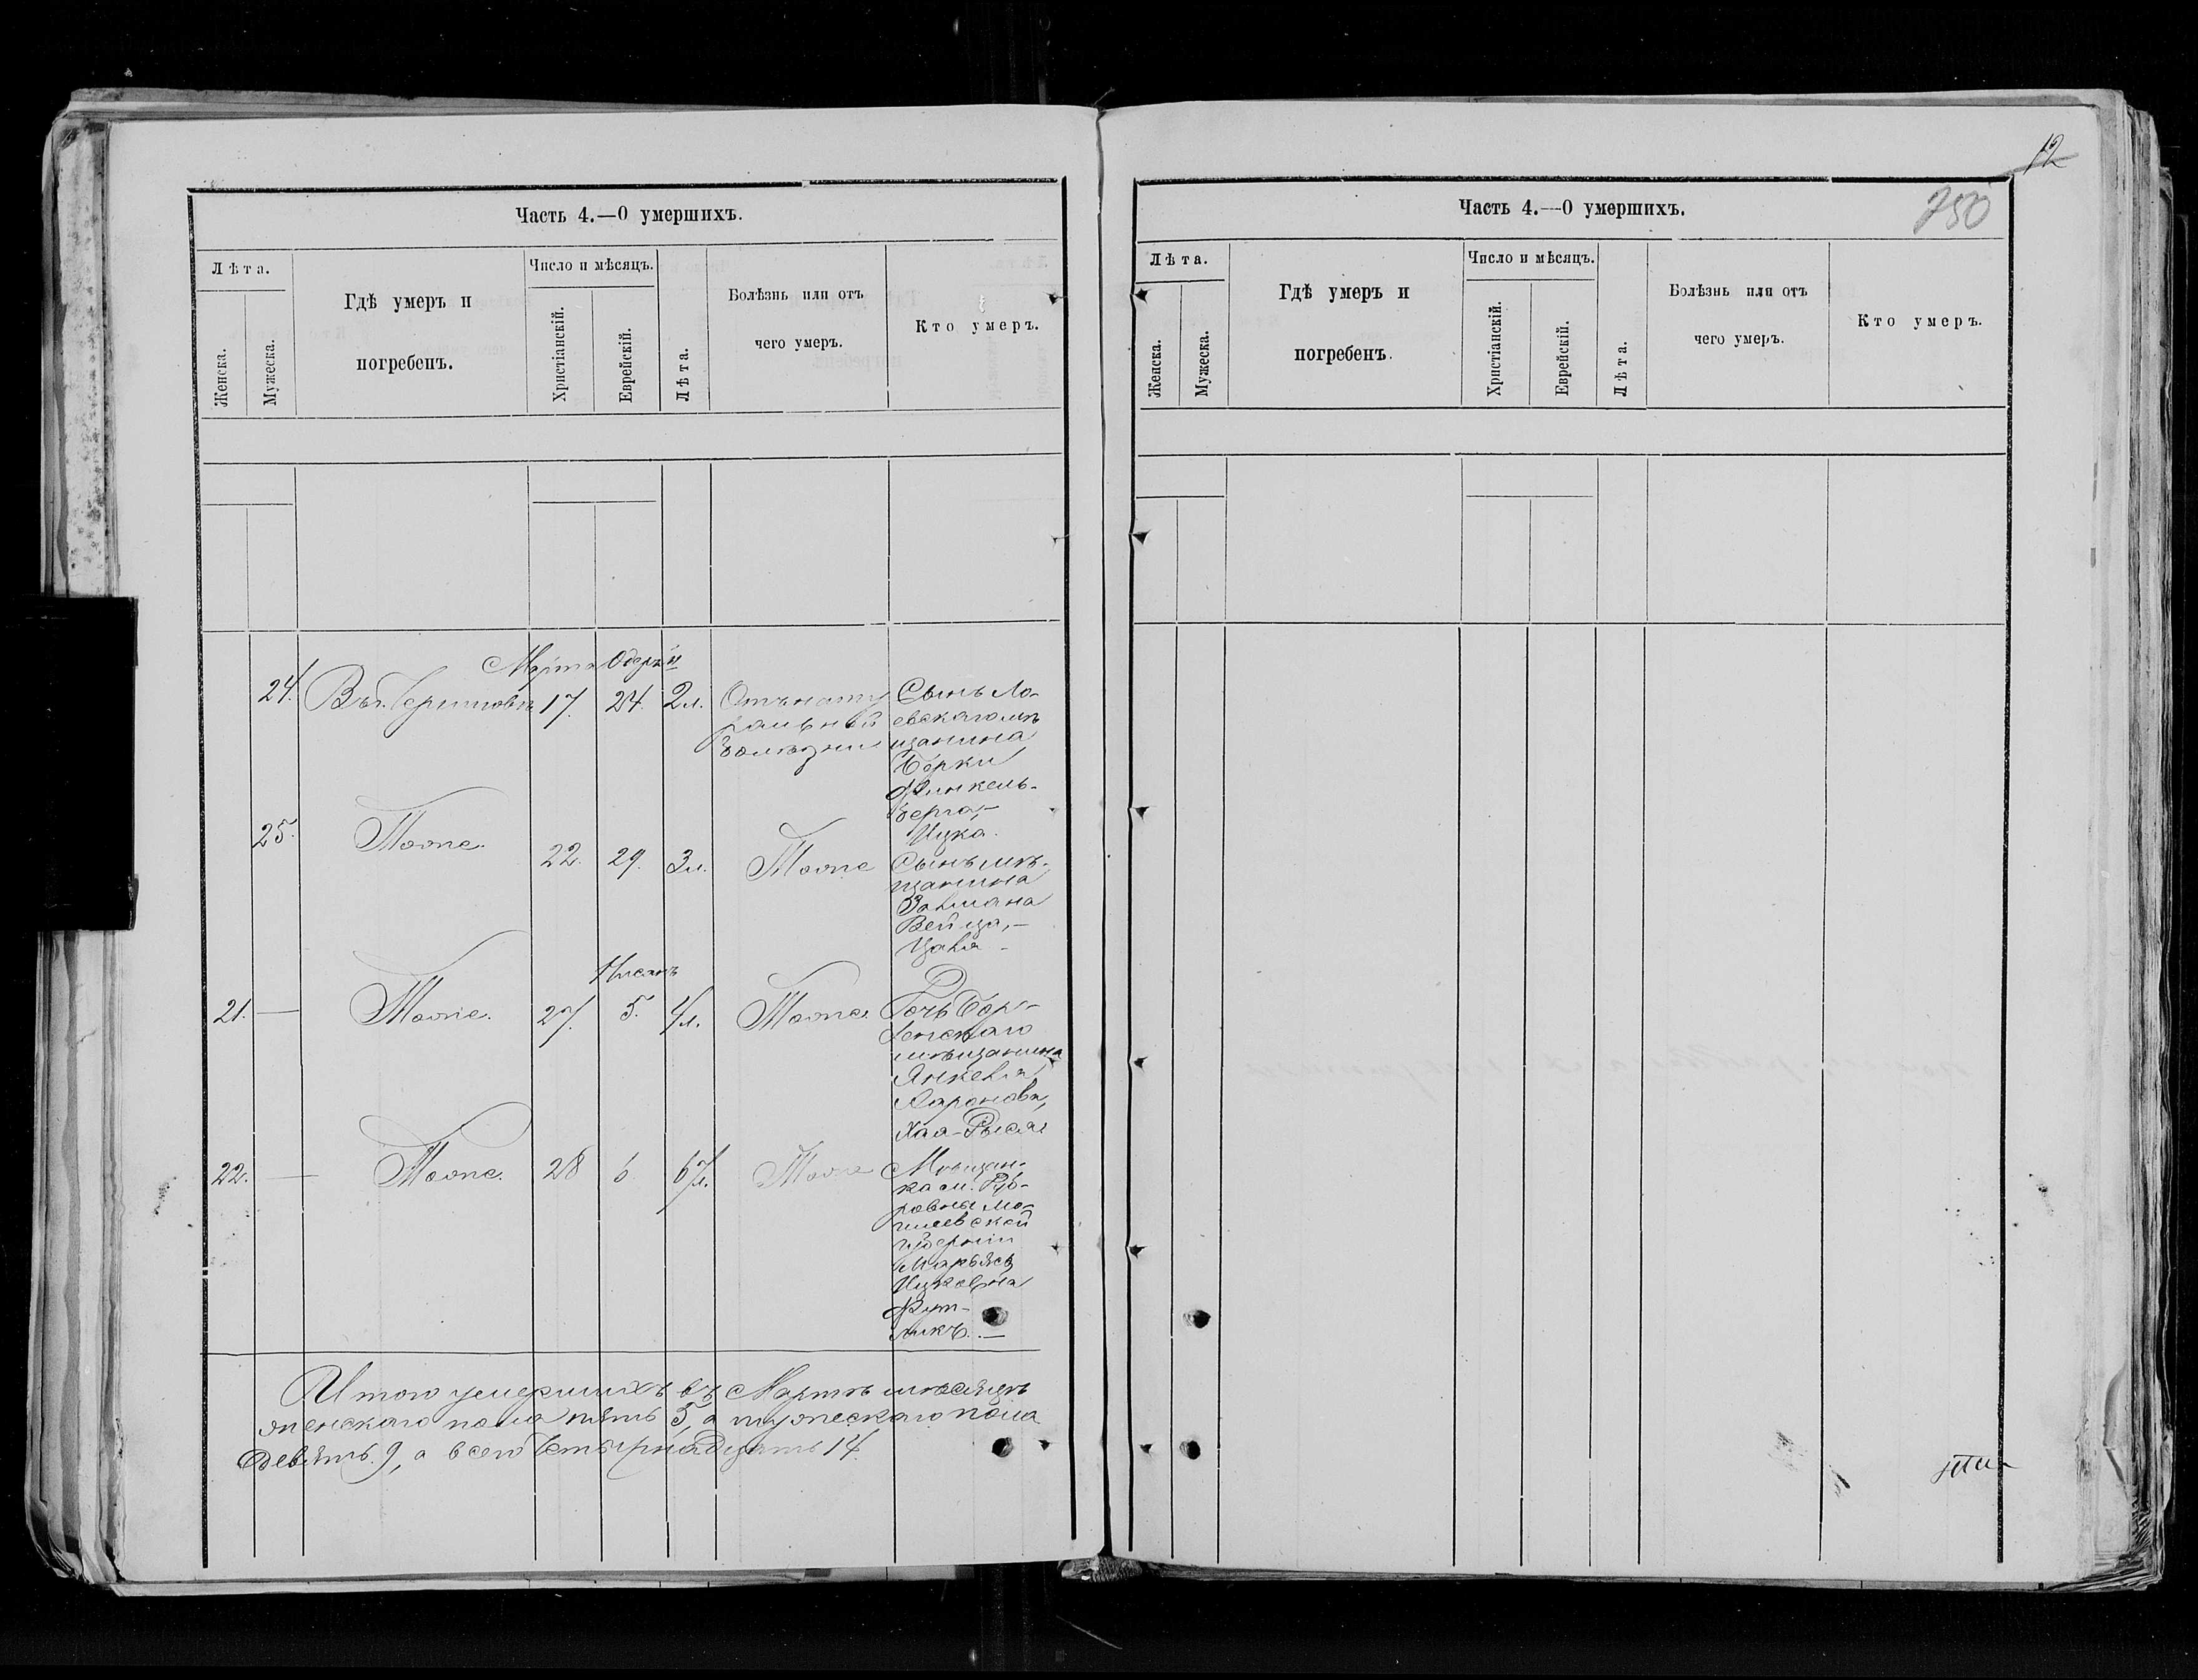 Часть 4.—О умершихъ.
Лѣта.
Женска.
Мужеска.
Гдѣ умеръ и
погребенъ.
Число и мѣсяцъ.
Христіанскій.
Еврейскій.
Лѣта.
Болѣзнь или отъ
чего умеръ.
Кто умеръ.
Марта Адеръ II
24. Въ г. Черниговѣ 17. 24. 2 л.
Отъ нату
ральной
болѣзни
Сынъ Ло-
евскаго мѣ
щанина
Берки
Финкель-
берга,—
Ицка.
25. Тоже. 22. 29. 3 л. Тоже
Сынъ мѣ-
щанина
Залмана
Вейца,—
Нисанъ
21. — Тоже. 27. 5. 4 л. Тоже.
Дочь Бер-
зенскаго
мѣщанина
Янкеля
Аронова,
Хая-Рыся
22. — Тоже. 28 6 67 л. Тоже
Мѣщан-
ка м.
мо-
гилевской
губерніи
Ицковна
Итого умершихъ въ Мартѣ мѣсяцѣ
женскаго пола пять 5, а мужескаго пола
девять 9, а всего четырнадцать 14.
12
250
Часть 4.—О умершихъ.
Лѣта.
Женска.
Мужеска.
Гдѣ умеръ и
погребенъ.
Число и мѣсяцъ.
Христіанскій.
Еврейскій.
Лѣта.
Болѣзнь или отъ
чего умеръ.
Кто умеръ.